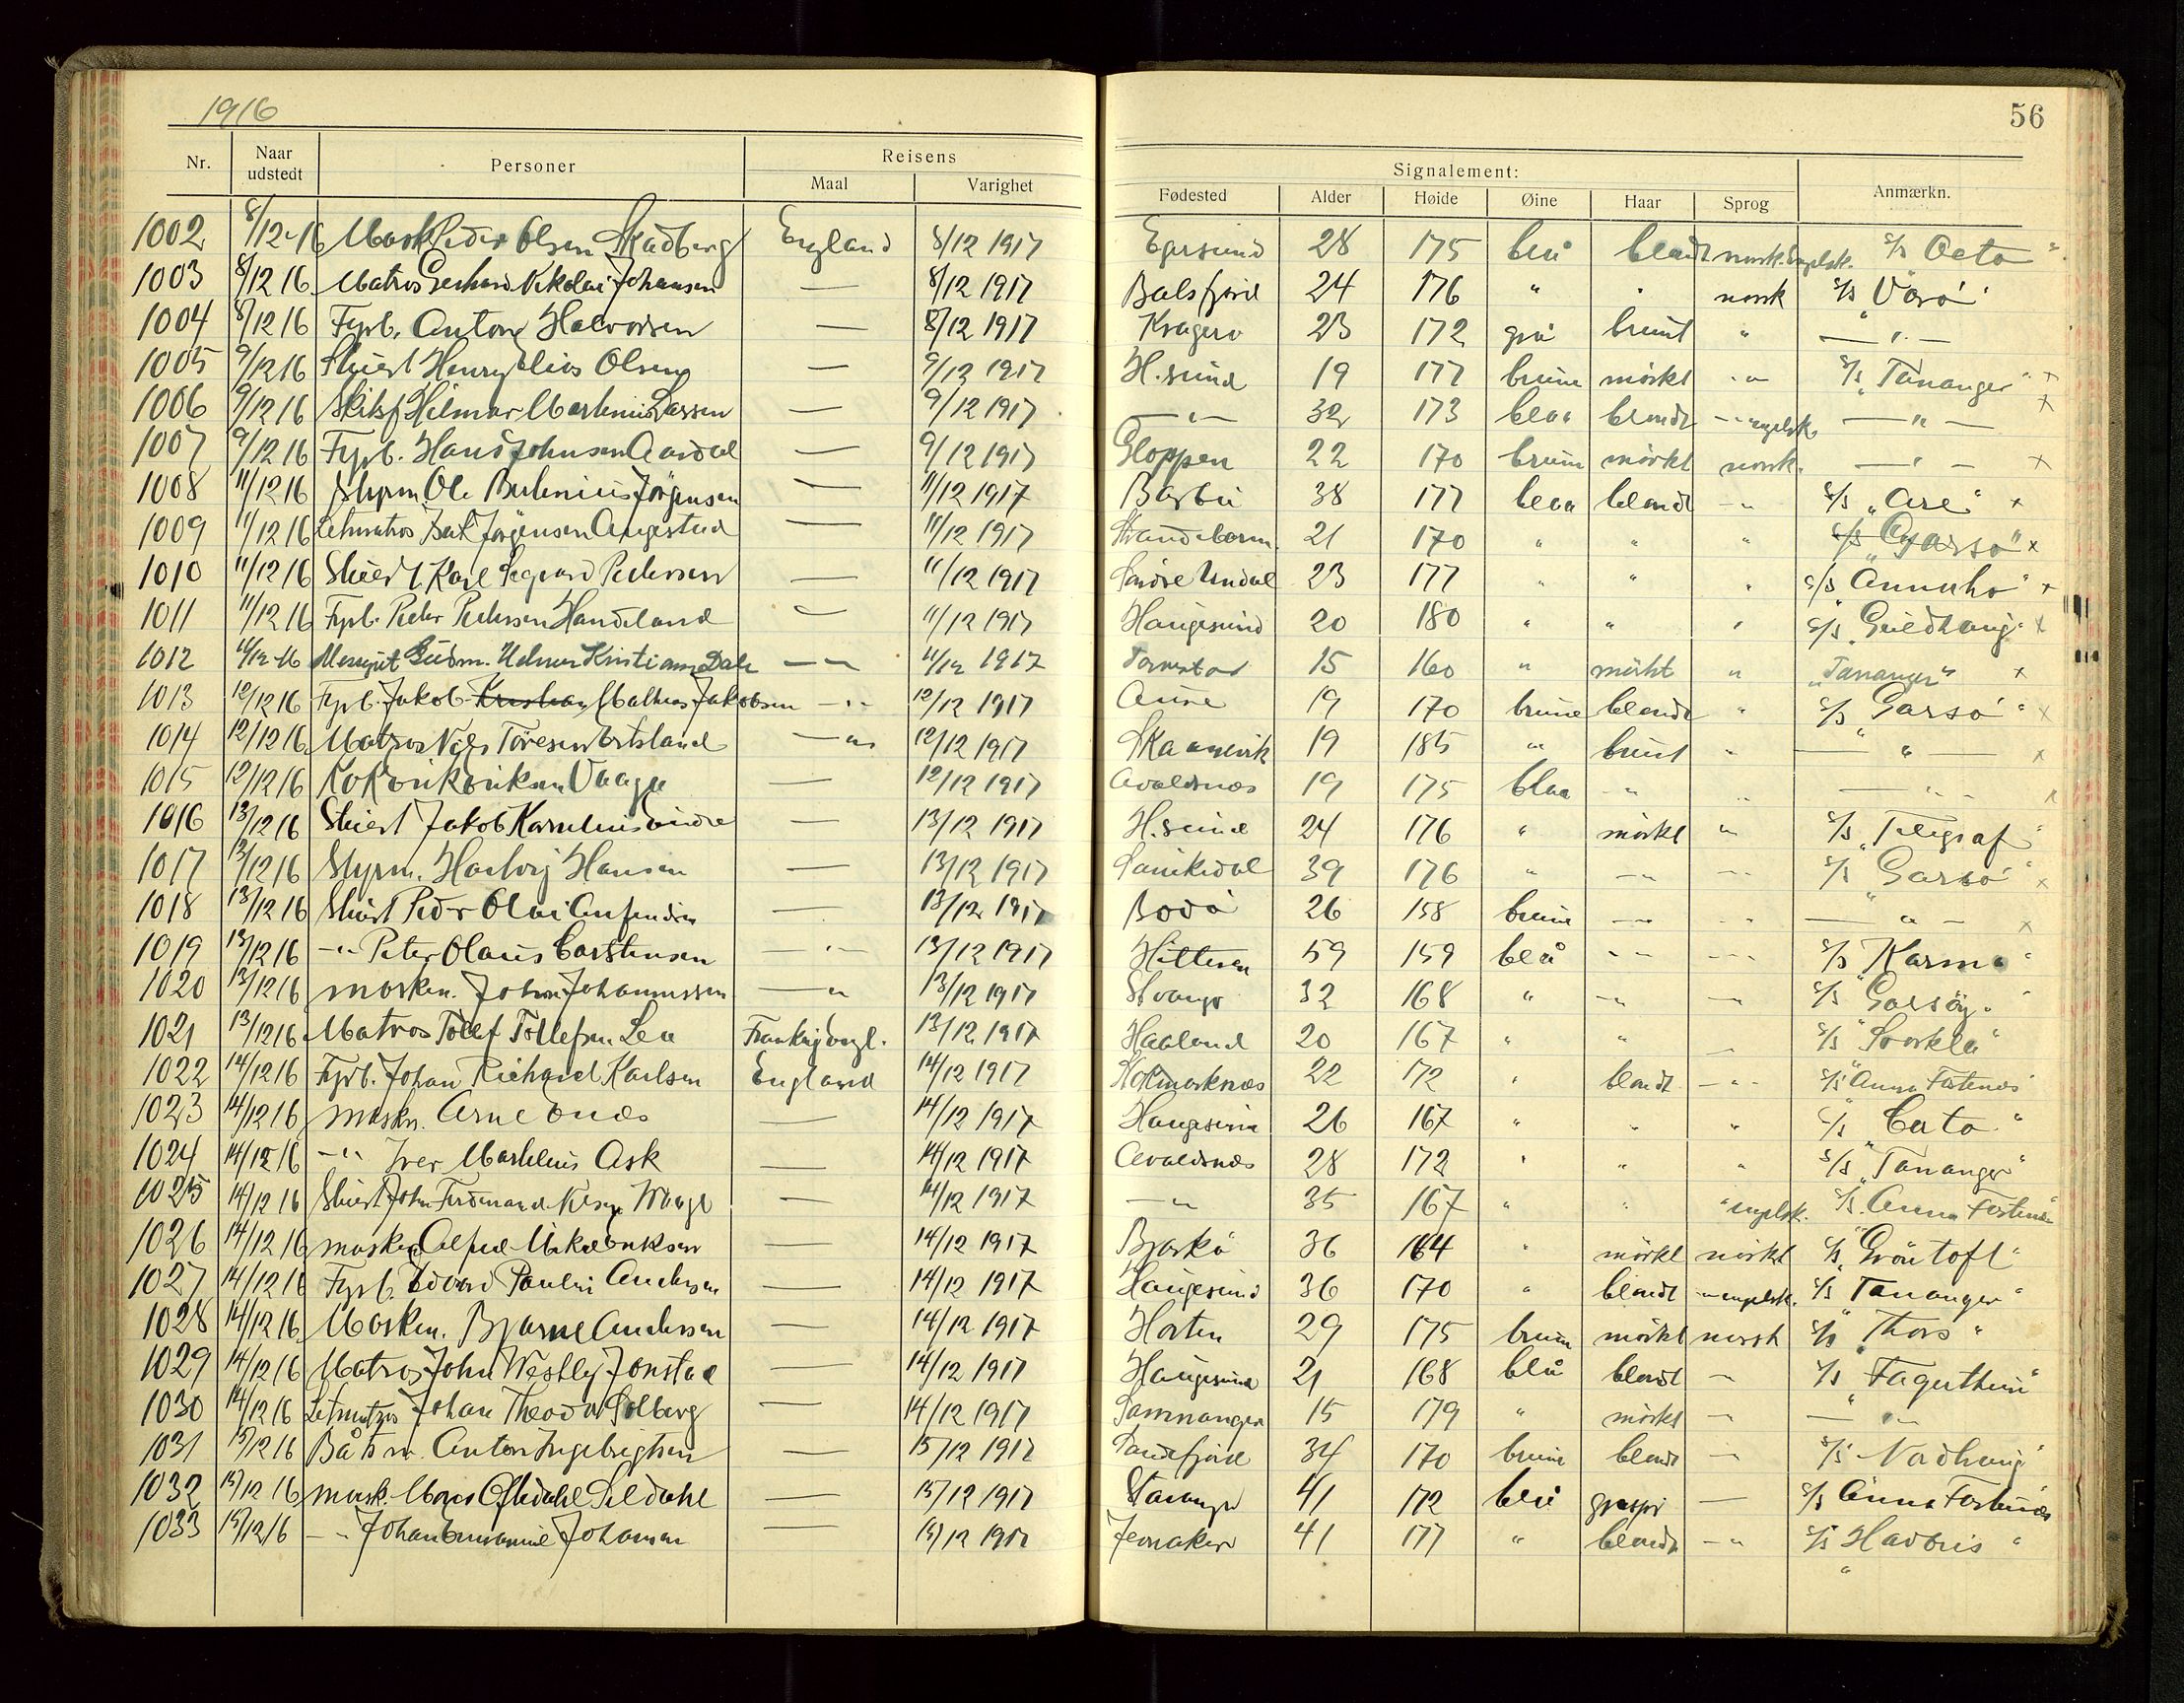 1916
56
Nr. Naar udstedt Personer Reisens Maal Varighet Signalement: Fødested Alder Høide Øine Haar Sprog Anmærkn.
1002 8/12-16 Mask Peder Olsen Skadberg England 8/12 1917 Egersund 28 175 blå blondt norsk. Engelsk. s/s Octo "
1003 8/12 16 Matros Gerhard Nikolai Johansen — 8/12 1917 Balsfjord 24 176 " " norsk s/s Vårö "
1004 8/12 16 Fyrb. Anton Halvorsen — 8/12 1917 Kragerø 23 172 grå brunt " — " —
1005 9/12 16 Stuert Henry Elias Olsen — 9/12 1917 H.sund 19 177 brune mörkt - " s/s "Tananger" x
1006 9/12 16 Hilmar Larsen — 9/12 1917 — " — 32 173 blaa blondt - " engelsk. — " — x
1007 9/12 16 Fyrb. Hans Johnsen Aardal — 9/12 1917 Gloppen 22 170 brune mörkt norsk. — " — x
1008 11/12 16 Styrm. Ole Jörgensen — 11/12 1917 Barbu 38 177 blaa blondt - " s/s "Are" x
1009 11/12 16 Letmatros Jörgensen — 11/12 1917 21 170 " " " s/s x
1010 11/12 16 Stuert Karl Pedersen — 11/12 1917 Söndre Undal 23 177 " " " s/s x
1011 11/12 16 Fyrb. Peder Pedersen Handeland — 11/12 1917 Haugesund 20 180 " " " s/s "Guldhaug" x
1012 11/12-16 Messegut Gudm. Helmer Kristiansen Dale — " 11/12 1917 Torvestad 15 160 " mörkt " "Tananger" x
1013 12/12 16 Fyrb. Jakob Kristian Mathias Jakobsen — " 12/12 1917 Aune 19 170 brune blondt " s/s "Garsö" x
1014 12/12 16 Matros Nils — " 12/12 1917 Skaanevik 19 185 " brunt " — " — x
1015 12/12 16 Kok Erik Eriksen Vaage — 12/12 1917 Avaldsnæs 19 175 blaa - " " — " — x
1016 13/12 16 Stuert Jakob — 13/12 1917 H.sund 24 176 " mörkt " s/s "Telegraf"
1017 13/12 16 Styrm. Hartvig Hansen — 13/12 1917 Sannikedal 39 176 " - " - " s/s "Garsö" x
1018 13/12 16 Stuert Peder Olai — 13/12 1917 Bodö 26 158 brune - " " — " — x
1019 13/12 16 - " Peter Olaus Carstensen — " — 13/12 1917 Hitteren 59 159 blå - " - " s/s "Karmö"
1020 13/12 16 maskin. Johan Johannessen — " 13/12 1917 Stvanger 32 168 " - " - " s/s "Garsöy"
1021 13/12 16 Matros Tollef Tollefsen Lea Frankrig Engl. 13/12 1917 Haaland 20 167 " " — s/s "Svorkla"
1022 14/12 16 Fyrb. Johan Richard Karlsen England 14/12 1917 22 172 " blondt - " - s/s "Anna Fostenes"
1023 14/12 16 maskn. Arne Enæs — 14/12 1917 Haugesund 26 167 " " " s/s "Cato"
1024 14/12 16 - " Iver Martelius Ask — 14/12 1917 Avaldsnæs 28 172 " " " s/s "Tananger"
1025 14/12 16 Stuert John Ferdinand Waage — 14/12 1917 — " 35 167 " " " engelsk. s/s "Anna Fostenes"
1026 14/12 16 maskin Alfred Mikal Eriksen — 14/12 1917 Bjarkö 36 164 " mörkt s/s "Gröntoft"
1027 14/12 16 Fyrb. Edvard Paulin Andersen — 14/12 1917 Haugesund 36 170 " blondt - " engelsk. s/s Tananger "
1028 14/12 16 Maskin. Bjarne Andersen — 14/12 1917 Horten 29 175 brune mörkt norsk s/s "Thors"
1029 14/12 16 Matros John Westley Jonstad — 14/12 1917 Haugesund 21 168 blå blondt — s/s "Fagerheim"
1030 14/12 16 Letmatros Johan Theodor Solberg — 14/12 1917 Samnanger 15 179 " mörkt — — " —
1031 15/12 16 Båtsm. Anton Ingebrigtsen — 15/12 1917 Sandefjord 34 170 brune blondt — s/s "Nordhaug"
1032 15/12 16 mask. Seldahl — 15/12 1917 Stavanger 41 172 blå — s/s Anna Fostenæs
1033 15/12 16 - " Johan Emanuel Johansen — 15/12 1917 Jevnaker 41 177 " blondt - " s/s "Havbris"